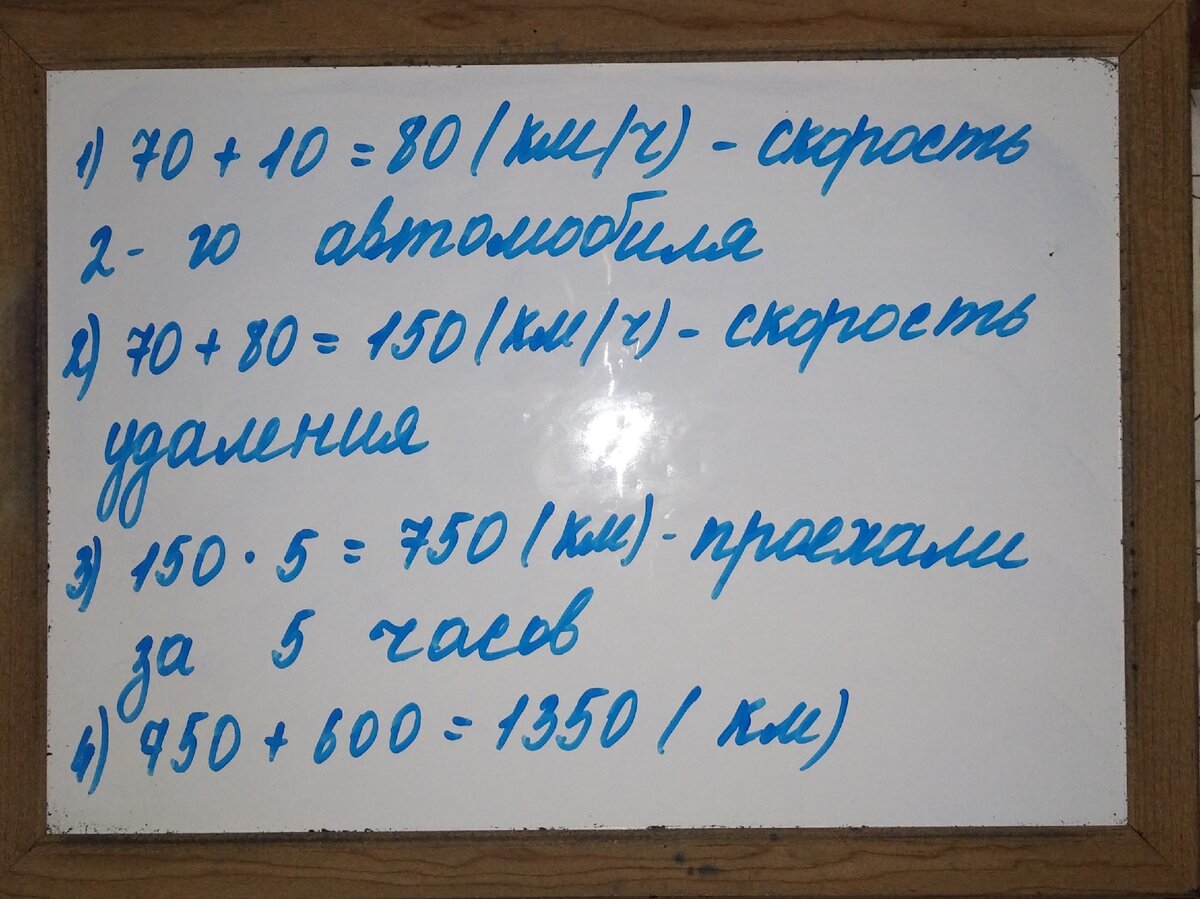 1) 70 + 10 = 80 (км/ч) - скорость
2- го автомобиля
2) 70 + 80 = 150 (км/ч) - скорость
удаления
3) 150 · 5 = 750 (км) - проехали
за 5 часов
4) 750 + 600 = 1350 ( км)